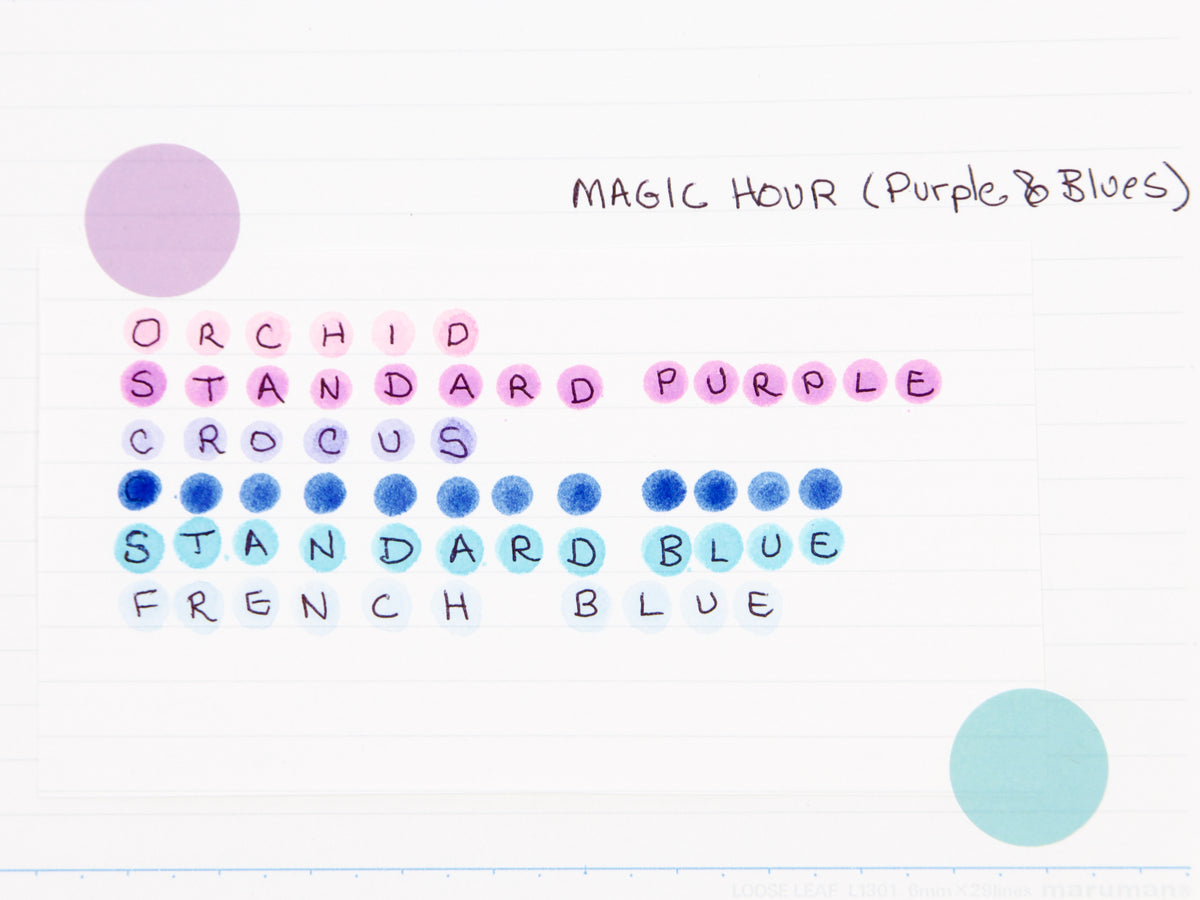 MAGIC HOUR (Purple & Blues)
ORCHID
STANDARD PURPLE
CROCUS
C
STANDARD BLUE
FRENCH BLUE
LOOSE LEAF L1301 6mm×29lines maruman